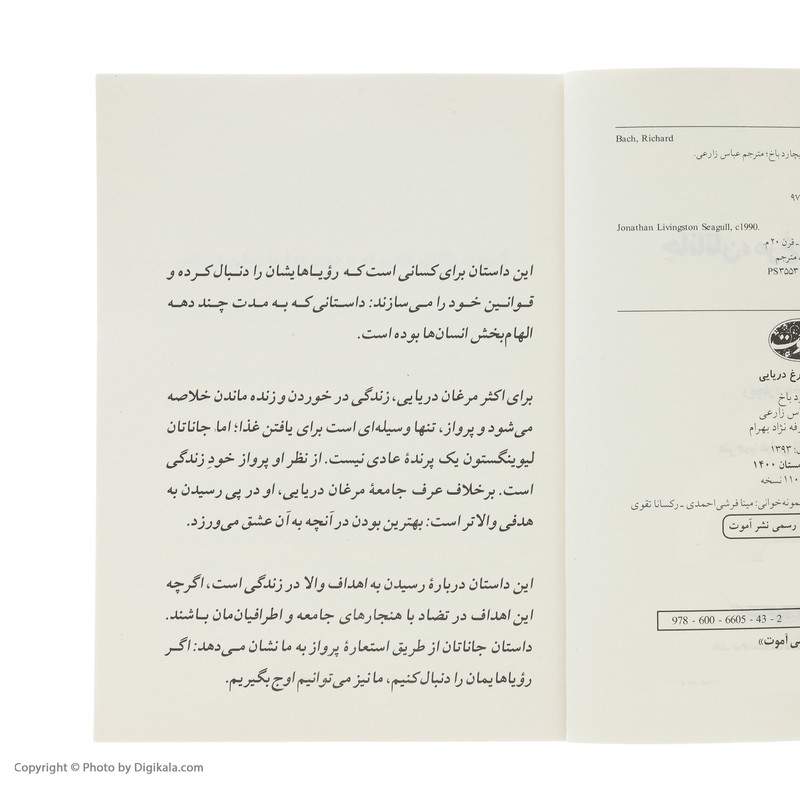 Bach, Richard
یچارد باخ؛ مترجم عباس زارعی.
۹۷
Jonathan Livingston Seagull, c1990.
ـ قرن ۲۰ م.
، مترجم
PS۳۵۵۳
رغ دریایی
د باخ
س زارعی
فه نژاد بهرام
: ۱۳۹۳
ستان ۱۴۰۰
۱۱۰ نسخه
نمونه‌خوانی: مینا فرشی‌احمدی ـ رکسانا تقوی
رسمی نشر آموت
978 - 600 - 6605 - 43 - 2
ی آموت»
این داستان برای کسانی است که رؤیاهایشان را دنبال کرده و
قوانین خود را می‌سازند: داستانی که به مدت چند دهه
الهام‌بخش انسان‌ها بوده است.
برای اکثر مرغان دریایی، زندگی در خوردن و زنده ماندن خلاصه
می‌شود و پرواز، تنها وسیله‌ای است برای یافتن غذا؛ اما جاناتان
لیوینگستون یک پرندهٔ عادی نیست. از نظر او پرواز خودِ زندگی
است. برخلاف عرف جامعهٔ مرغان دریایی، او در پی رسیدن به
هدفی والاتر است: بهترین بودن در آنچه به آن عشق می‌ورزد.
این داستان دربارهٔ رسیدن به اهداف والا در زندگی است، اگرچه
این اهداف در تضاد با هنجارهای جامعه و اطرافیان‌مان باشند.
داستان جاناتان از طریق استعارهٔ پرواز به ما نشان می‌دهد: اگر
رؤیاهایمان را دنبال کنیم، ما نیز می‌توانیم اوج بگیریم.
Copyright © Photo by Digikala.com